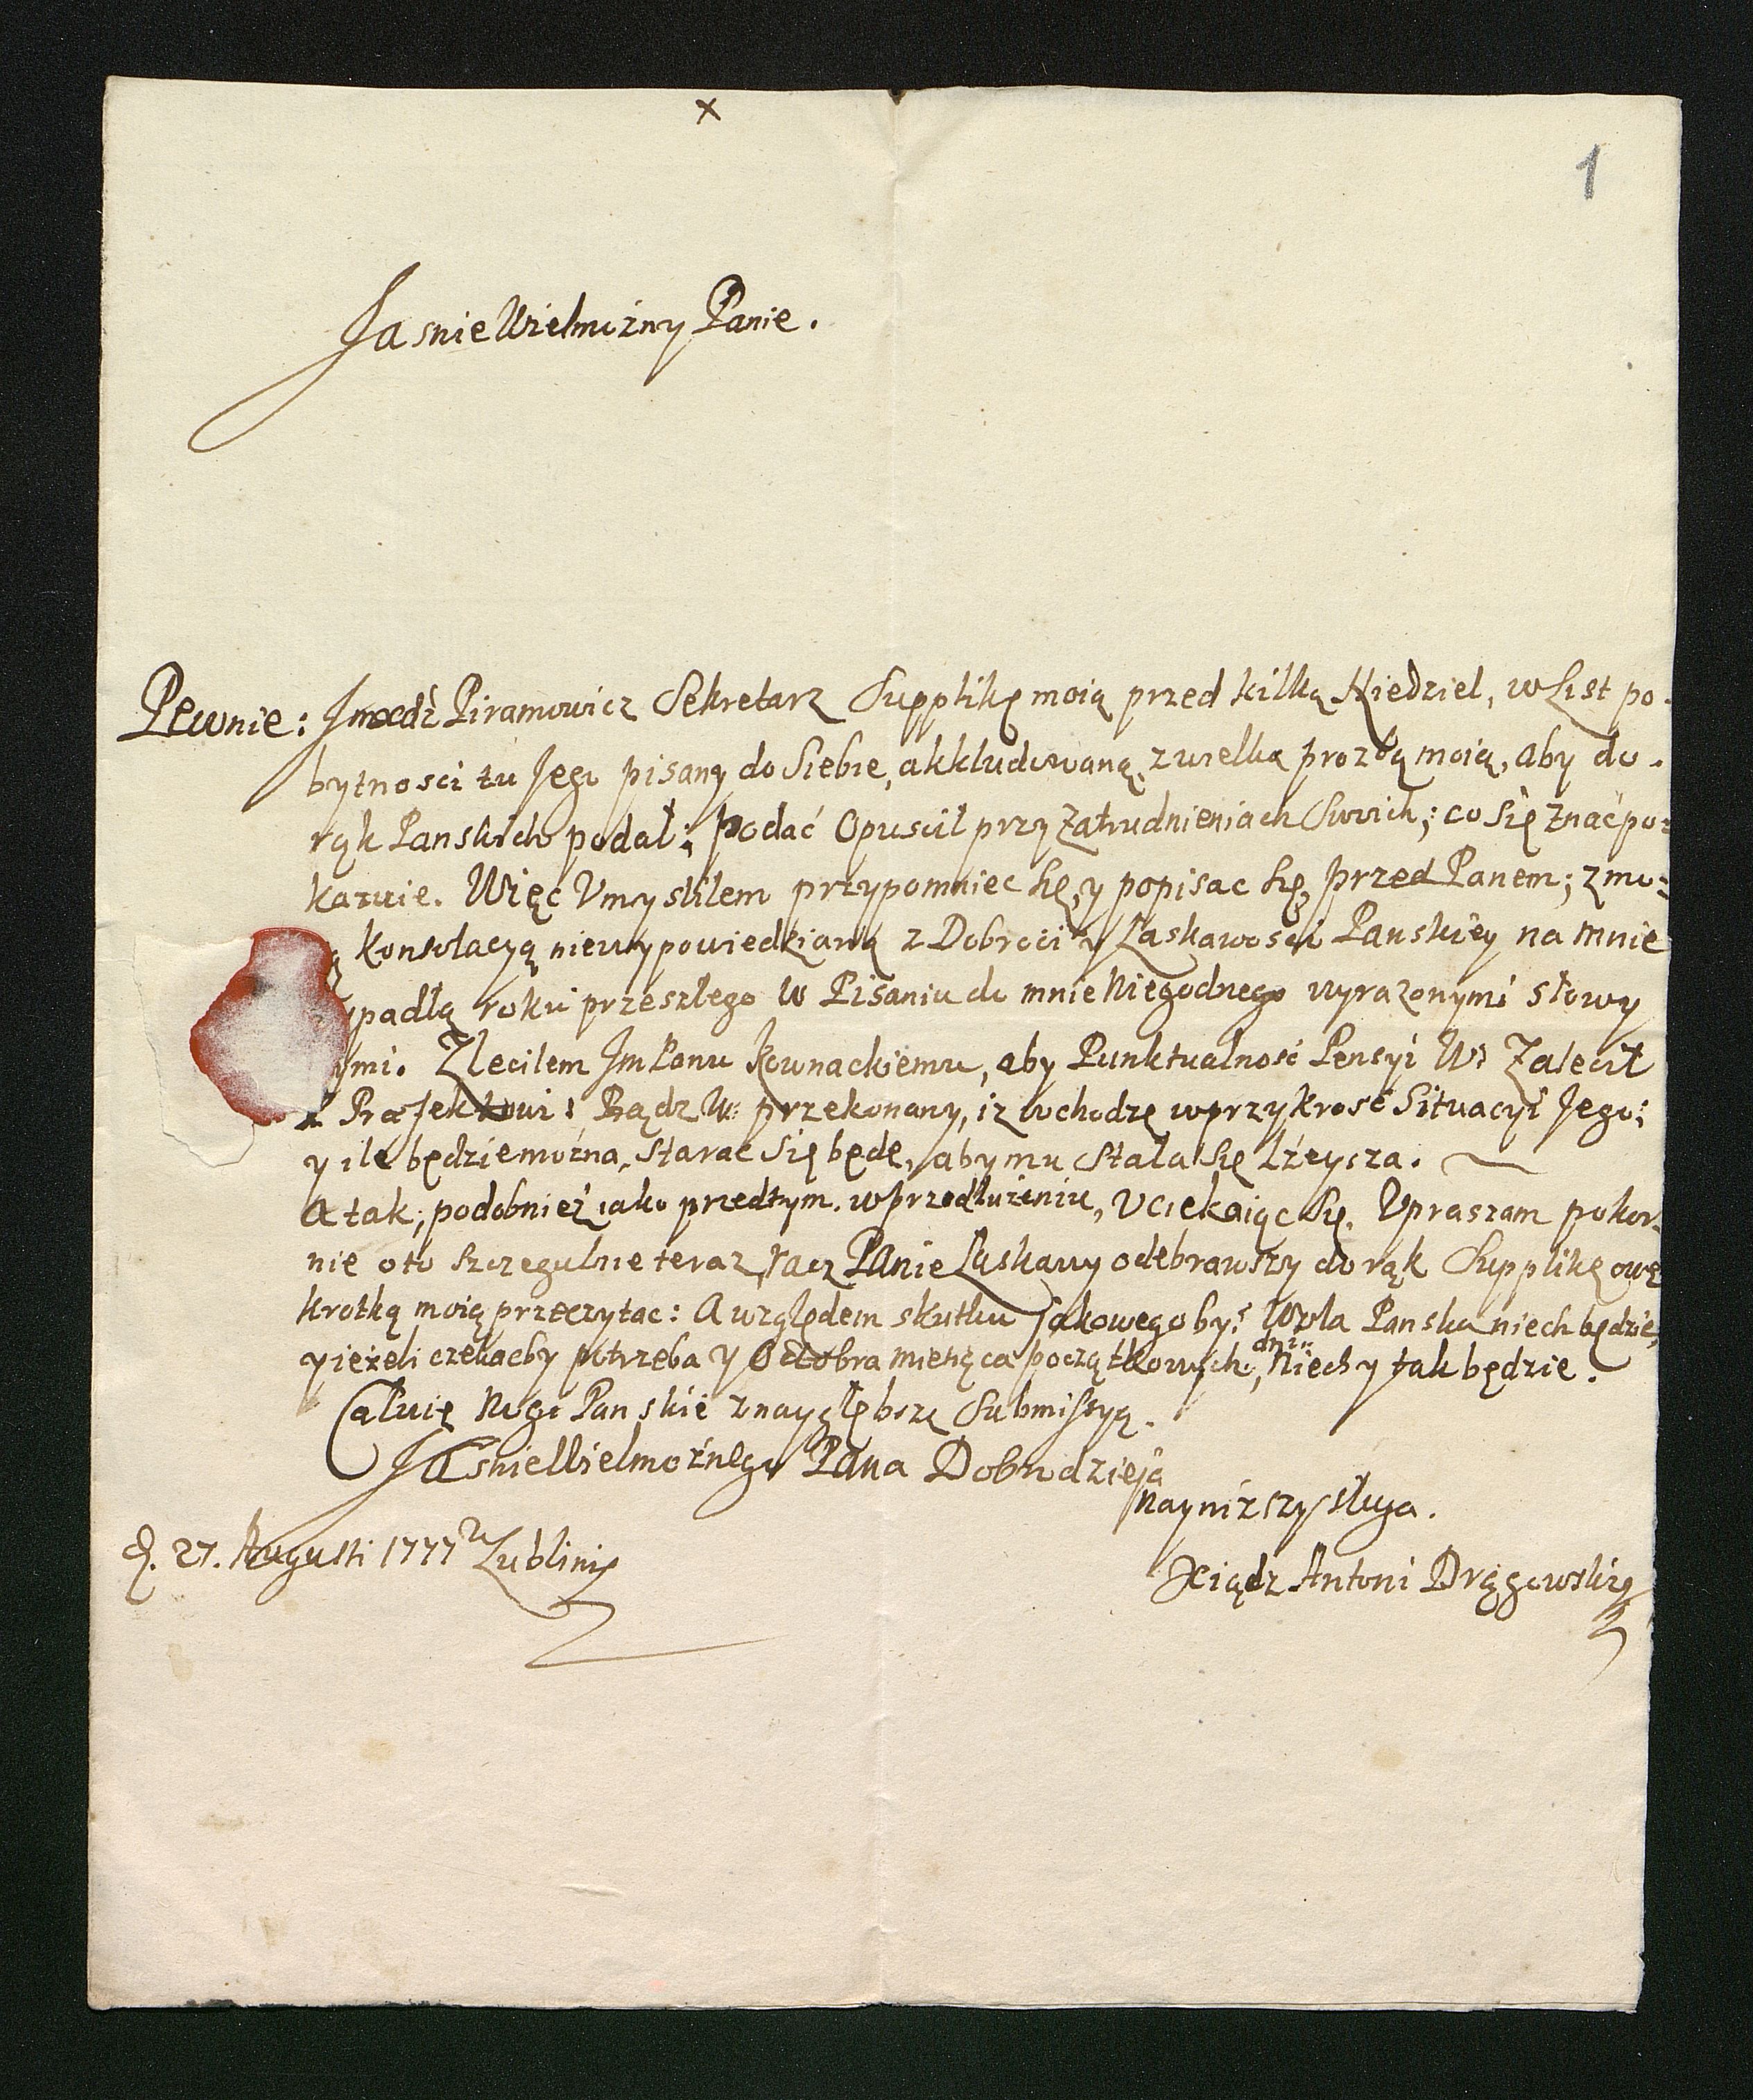 x
1
Jasnie Wielmożny Panie.
Pewnie: Jmcdź Piramowicz Sekretarz Supplikę moią przed kilką Niedziel, w List po-
bytnosci tu Jego pisany do Siebie, akkludowaną, z wielką prozbą moią, aby do.
rąk Panskich podał; podać Opuscił przy Zatrudnieniach Swoich; co się znać po=
kazuie. Więc Vmyslilem przypomniec się, y popisac się, przed Panem; z mo=
ą Konsolacyą niewypowiedzianą z Dobroci y Łaskawosci Panskiey na mnie
ypadłą roku przeszłego w Pisaniu do mnie Niegodnego wyrazonymi słowy
ymi. Zlecilem Jm Panu Kownackiemu, aby Punktualność Pensyi W: Zalecił
Præfektowi: Bądz W: przekonany, iz wchodzę w przykrosć Situacyi Jego:
y ile będzie można, starac się będę, aby mu stala się lżeysza.
A tak, podobnież iako przedtym. w przedłużeniu, Vciekaiąc się. Vpraszam pokor-
nie o to szczegulnie teraz, racz PAnie Łaskawy odebrawszy do rąk Supplikę owę
krotką moią przeczytac: A względem skutku jakowegoby? Wola Panska niech będzie,
y ieżeli czekacby potrzeba y Octobra miesięca początkowych dni, Niech y tak będzie.
Całuię Nogi Panskie z nayglębszą Submissyą.
JAsnieWielmożnego Pana Dobrodzieja
naynizszy sługa.
d. 27. Augusti 1777 Lublin
Xiądz Antoni Drągowski